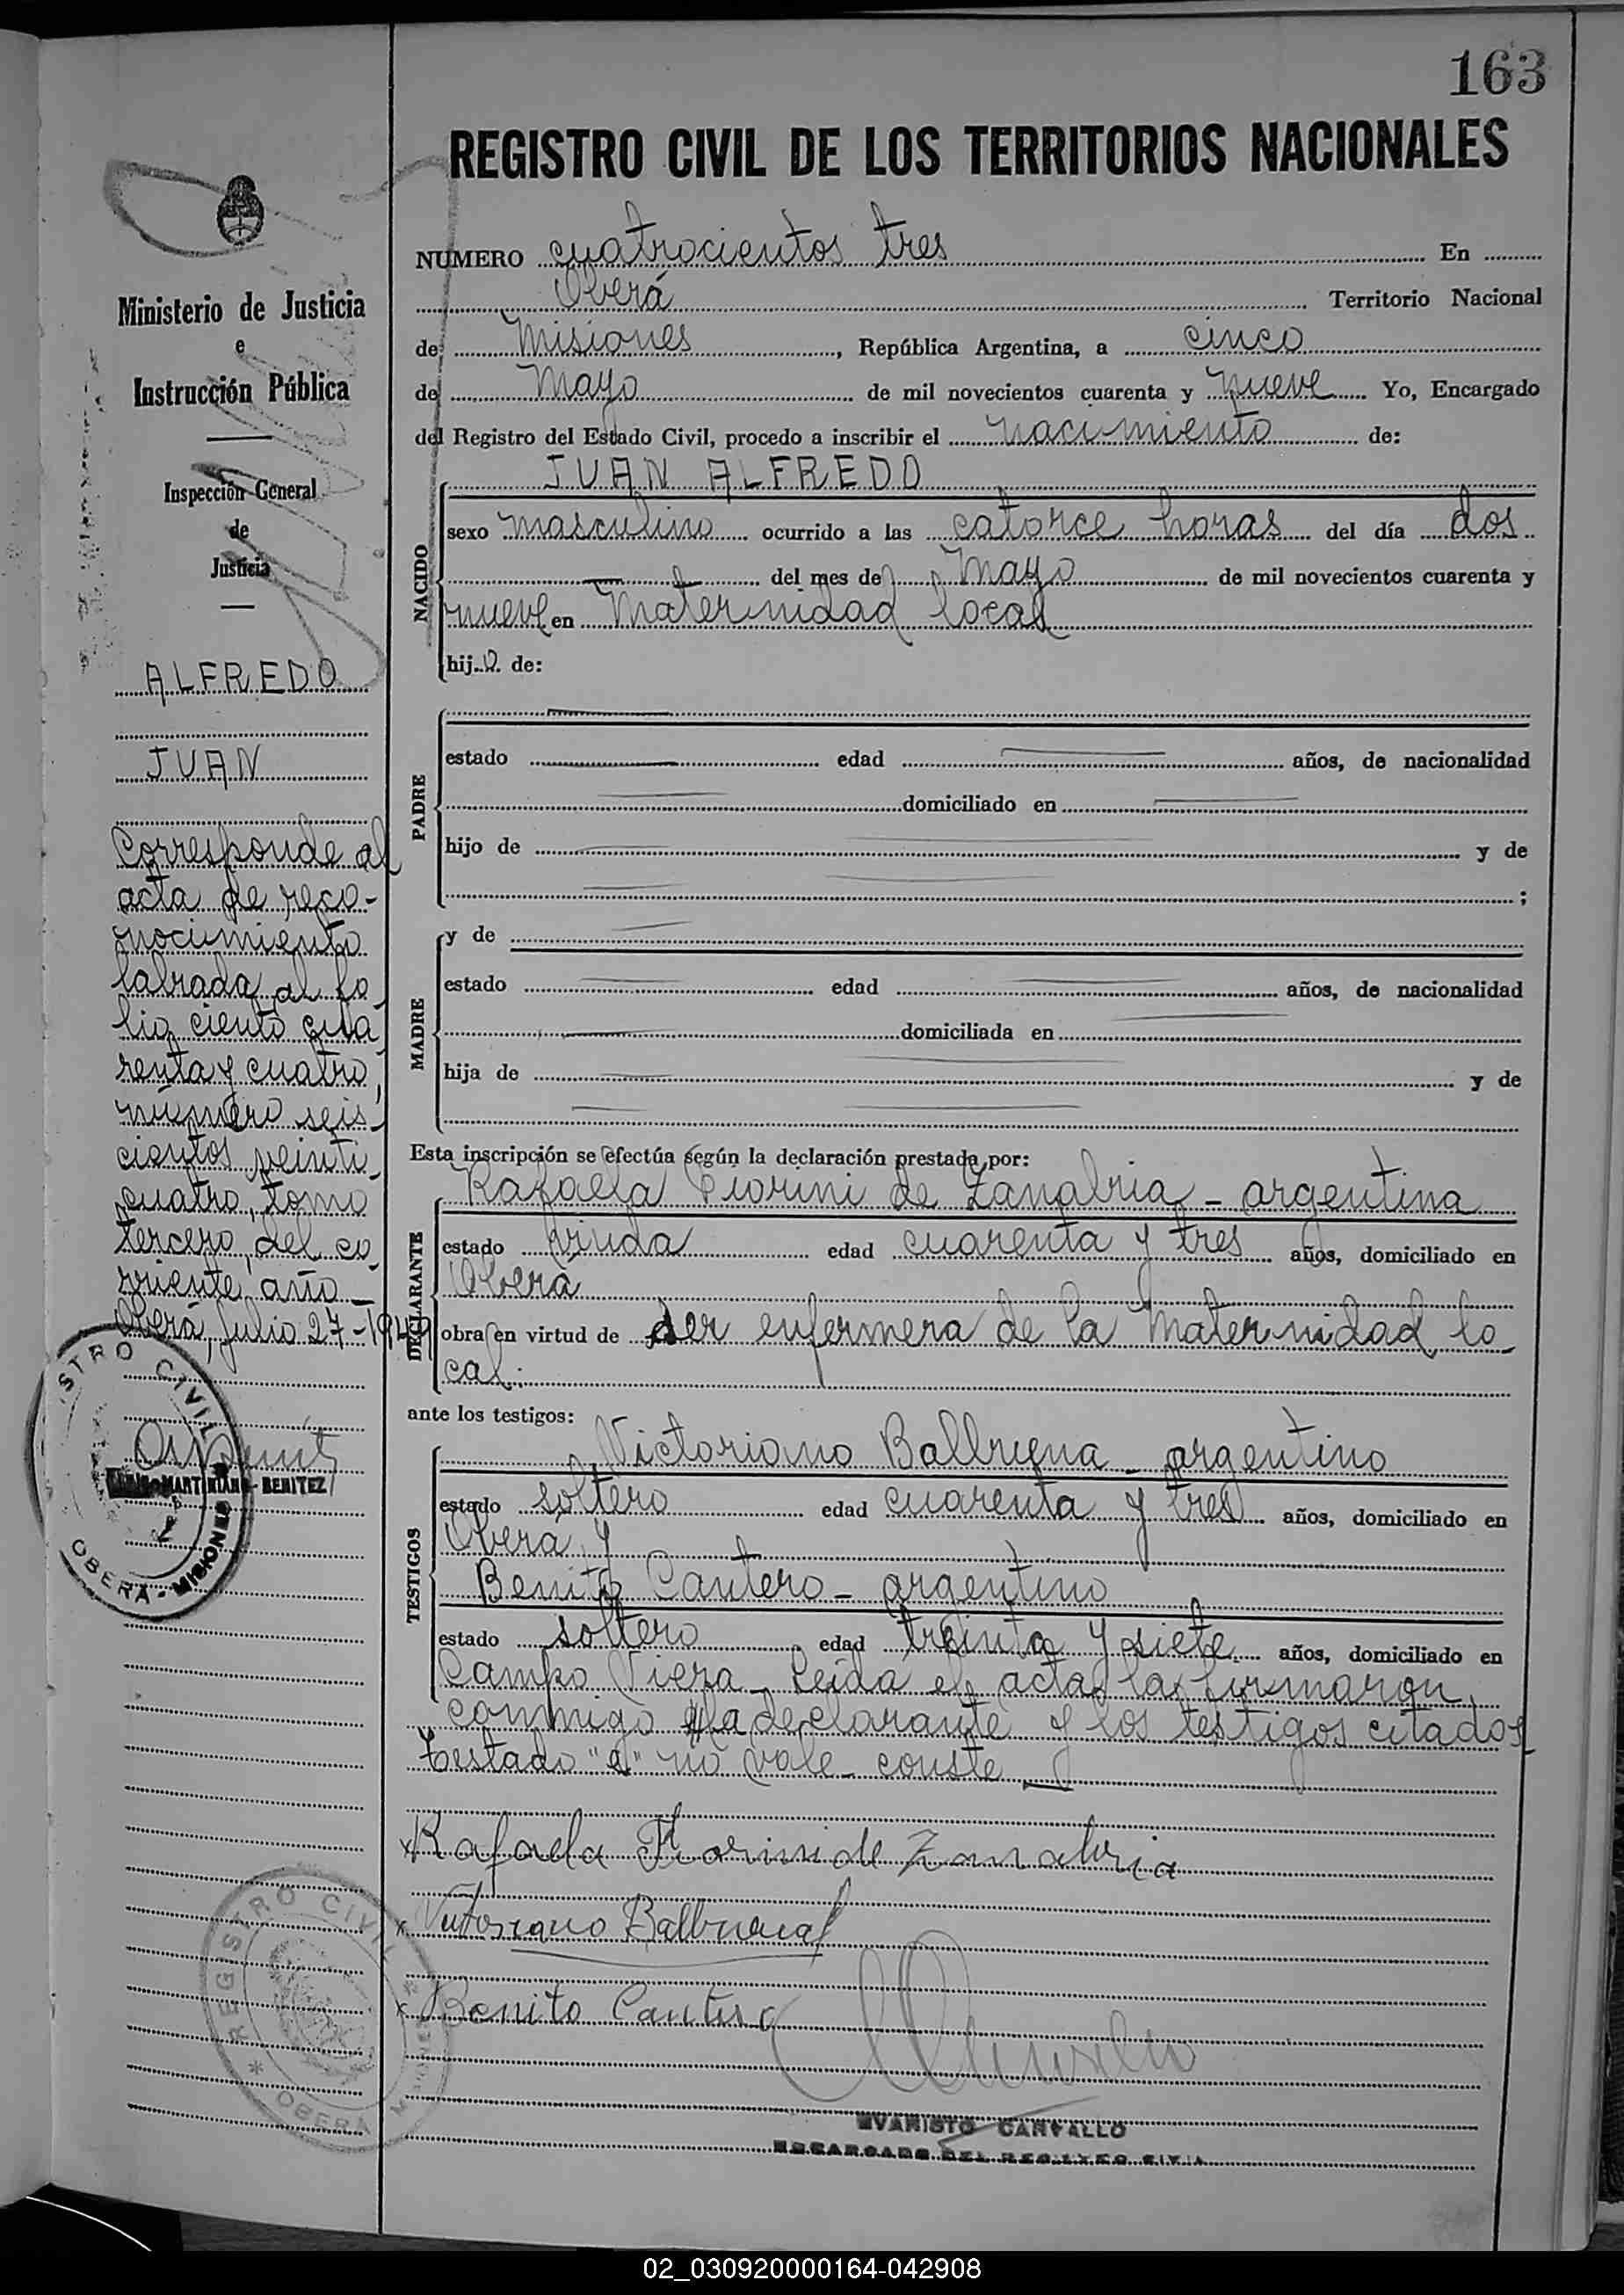 163
REGISTRO CIVIL DE LOS TERRITORIOS NACIONALES
NUMERO cuatrocientos tres En
Oberá Territorio Nacional
de Misiones, República Argentina, a cinco
de Mayo de mil novecientos cuarenta y nueve Yo, Encargado
del Registro del Estado Civil, procedo a inscribir el nacimiento de:
NACIDO
JUAN ALFREDO
sexo masculino ocurrido a las catorce horas del día dos
del mes de Mayo de mil novecientos cuarenta y
nueve en Maternidad local
hijo de:
PADRE
estado edad años, de nacionalidad
domiciliado en
hijo de y de
;
MADRE
y de
estado edad años, de nacionalidad
domiciliada en
hija de y de
Esta inscripción se efectúa según la declaración prestada por:
DECLARANTE
Rafaela Fiorini de Zanabria - argentina
estado viuda edad cuarenta y tres años, domiciliado en
Oberá
obra en virtud de ser enfermera de la Maternidad lo-
cal.
ante los testigos:
TESTIGOS
Victoriano Balbuena - argentino
estado soltero edad cuarenta y tres años, domiciliado en
Oberá y
Benito Cantero - argentino
estado soltero edad treinta y siete años, domiciliado en
Campo Viera - Leída el acta, la firmaron
conmigo la declarante y los testigos citados
Testado "e" no vale - conste
Rafaela Fiorini de Zanabria
Victoriano Balbuena
Benito Cantero
EVARISTO CARVALLO
ENCARGADO DEL REGISTRO CIVIL
Ministerio de Justicia
e
Instrucción Pública
Inspección General
de
Justicia
ALFREDO
JUAN
Corresponde al
acta de reco-
nocimiento
labrada al fo-
lio ciento cua-
renta y cuatro,
número seis-
cientos veinti-
cuatro, tomo
tercero, del co-
rriente año -
Oberá, Julio 27-1949
STRO CIVIL
MARTINIANO BENITEZ
OBERA - MISIONES
REGISTRO CIVIL
* OBERA MISIONES *
02_030920000164-042908